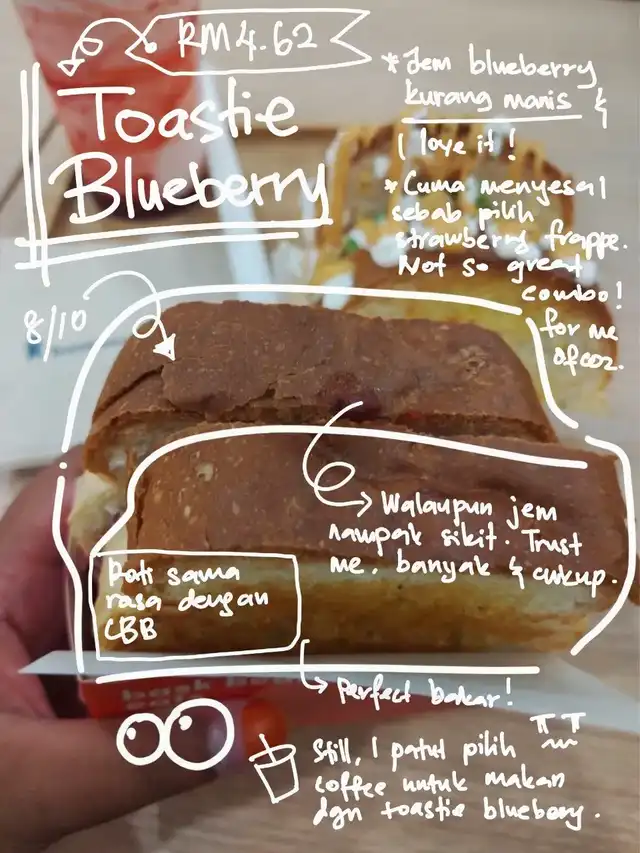 RM4.62
Toastie
Blueberry
* Jem blueberry
kurang manis &
I love it!
* Cuma menyesal
sebab pilih
strawberry frappe.
Not so great
combo!
for me
ofcoz.
8/10
Walaupun jem
nampak sikit. Trust
me, banyak & cukup.
Roti sama
rasa dengan
CBB
Perfect bakar!
Still, I patut pilih
coffee untuk makan
dgn toastie blueberry.